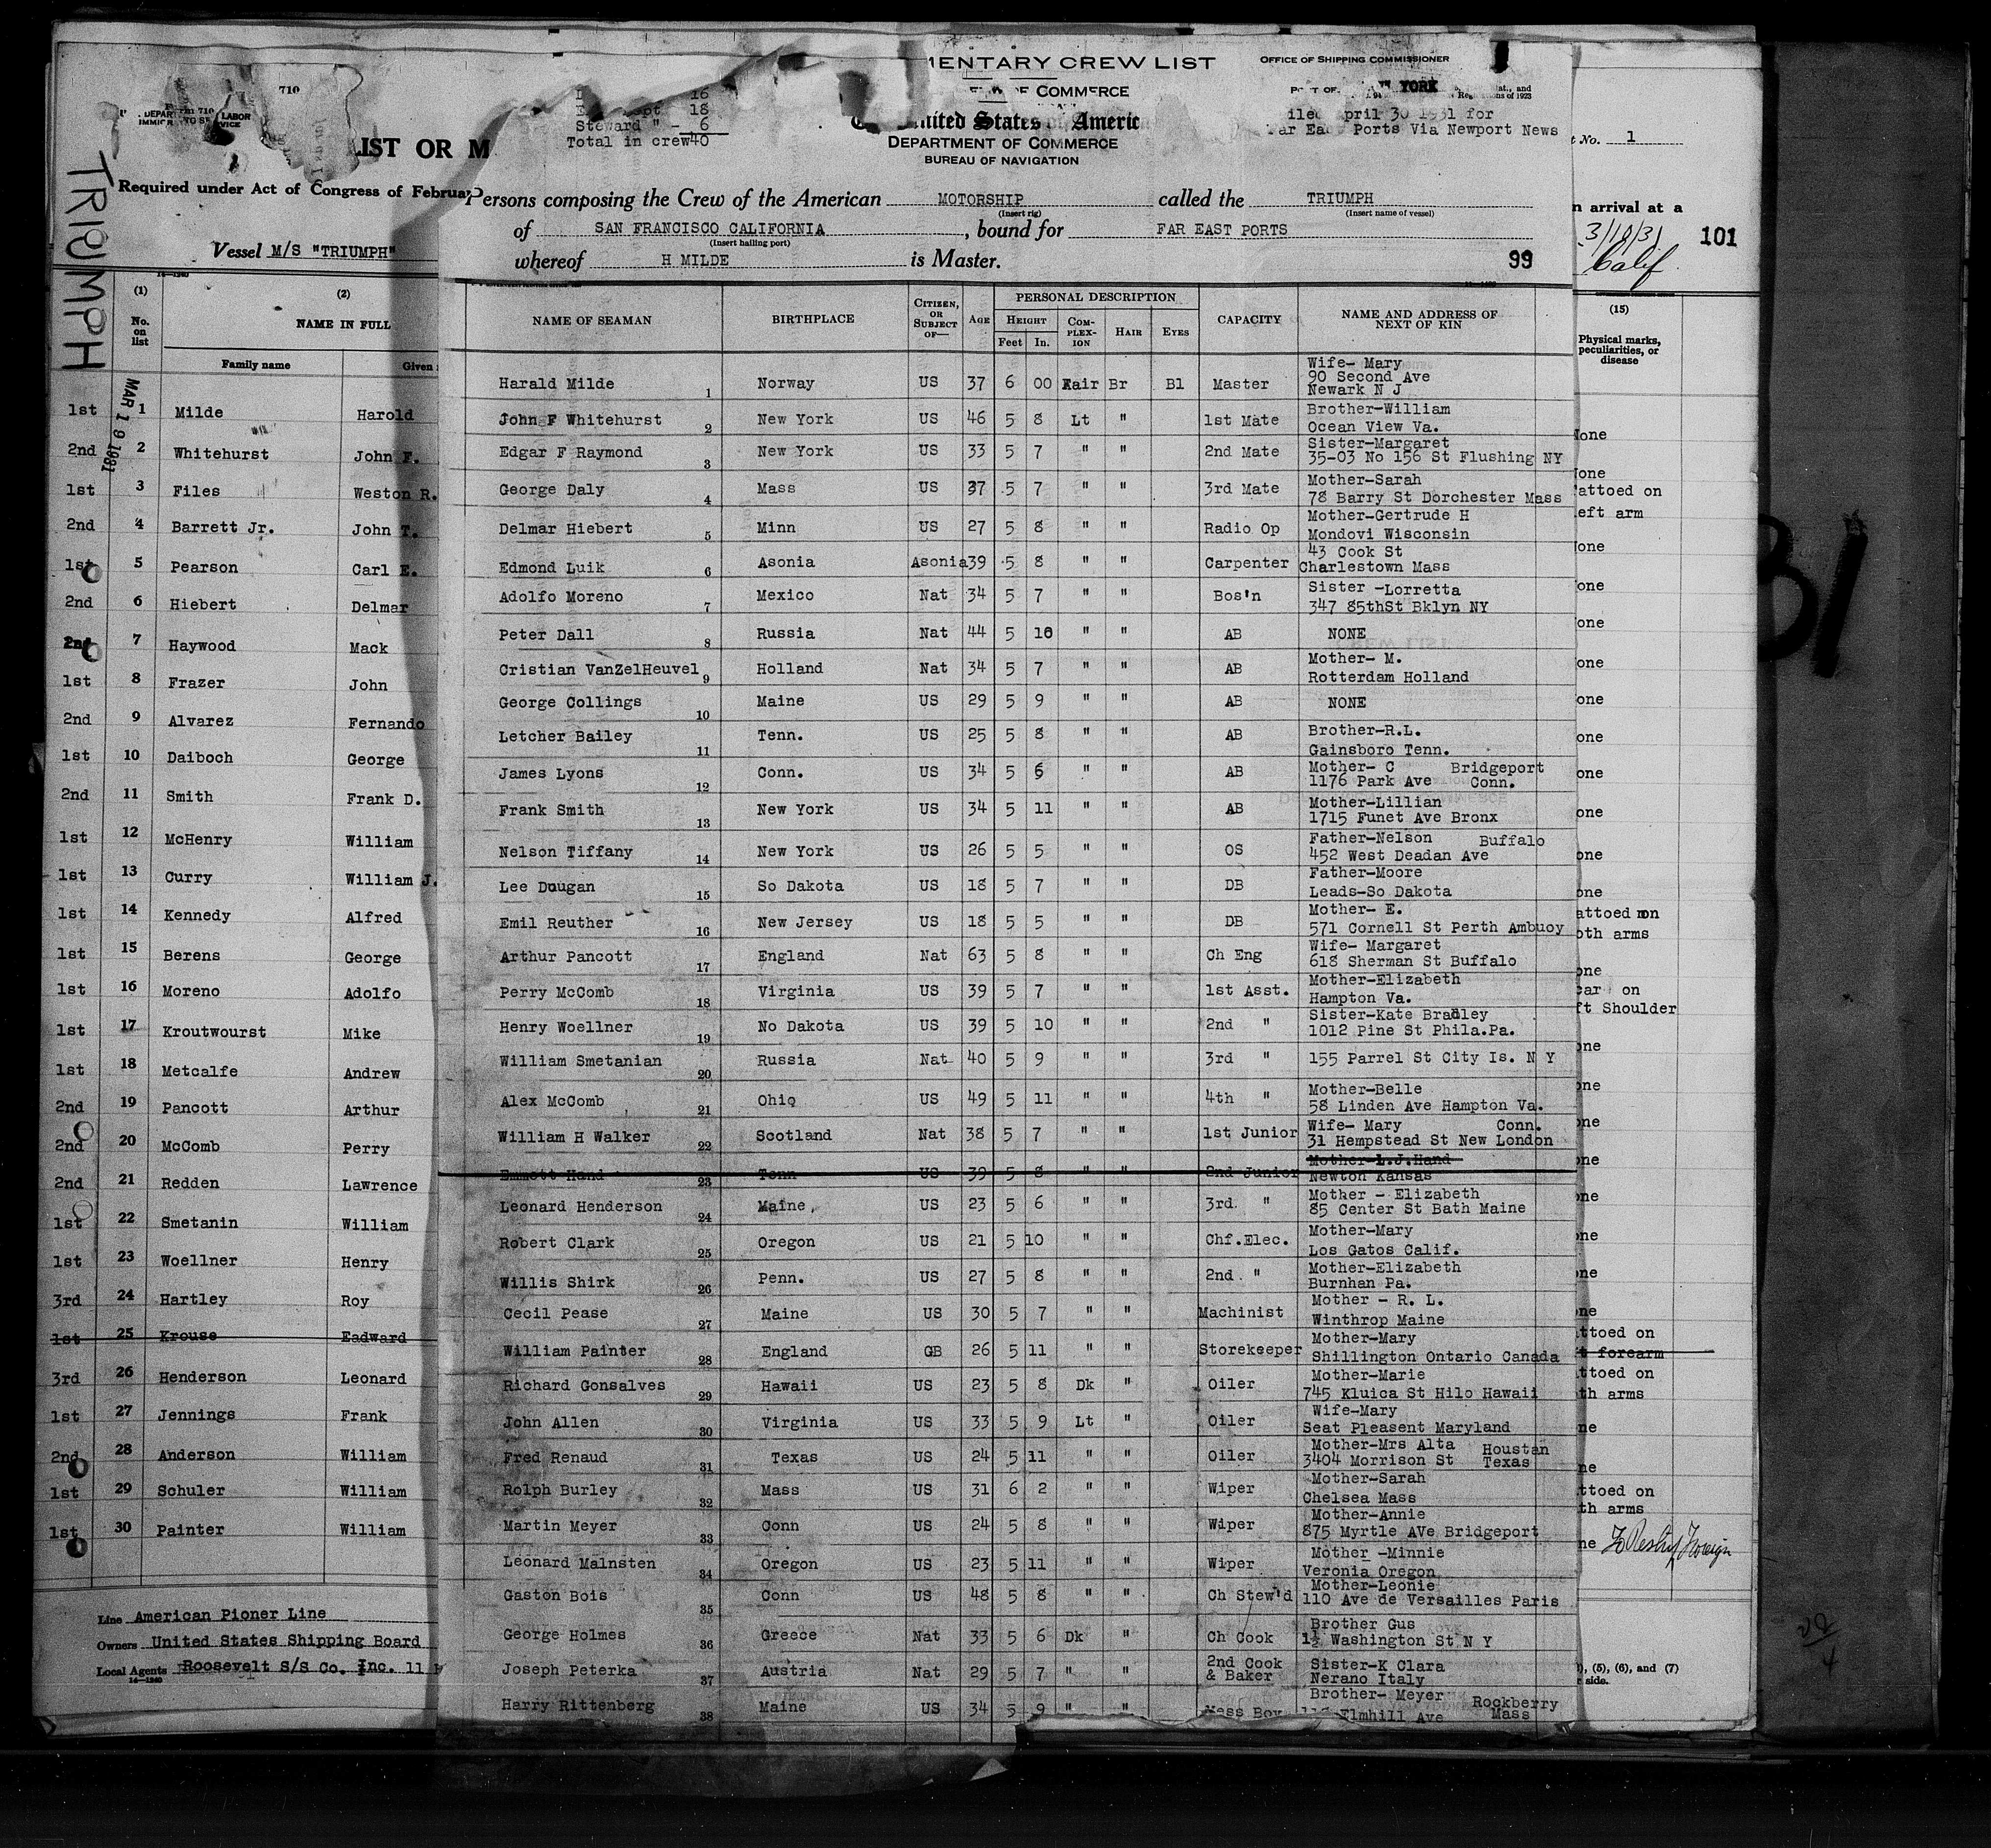 MENTARY CREW LIST
OFFICE OF SHIPPING COMMISSIONER
710
16
OF COMMERCE
PORT OF YORK
18
Steward " - 6
Total in crew 40
United States of Americ
DEPARTMENT OF COMMERCE
BUREAU OF NAVIGATION
April 30 1931 for
Ports Via Newport News
No. 1
LIST OR M
TRIUMPH
Required under Act of Congress of Februar
Persons composing the Crew of the American MOTORSHIP called the TRIUMPH
(Insert rig) (Insert name of vessel)
of SAN FRANCISCO CALIFORNIA, bound for FAR EAST PORTS
(Insert hailing port)
whereof H MILDE is Master. 99
n arrival at a
3/18/31
Calif
101
Vessel M/S "TRIUMPH"
(1) (2)
No. on list NAME IN FULL
Family name Given
MAR 19 1931
1st 1 Milde Harold
2nd 2 Whitehurst John F.
1st 3 Files Weston R.
2nd 4 Barrett Jr. John T.
1st 5 Pearson Carl E.
2nd 6 Hiebert Delmar
2nd 7 Haywood Mack
1st 8 Frazer John
2nd 9 Alvarez Fernando
1st 10 Daiboch George
2nd 11 Smith Frank D.
1st 12 McHenry William
1st 13 Curry William J.
1st 14 Kennedy Alfred
1st 15 Berens George
1st 16 Moreno Adolfo
1st 17 Kroutwourst Mike
1st 18 Metcalfe Andrew
2nd 19 Pancott Arthur
2nd 20 McComb Perry
2nd 21 Redden Lawrence
1st 22 Smetanin William
1st 23 Woellner Henry
3rd 24 Hartley Roy
1st 25 Krouse Eadward
3rd 26 Henderson Leonard
1st 27 Jennings Frank
2nd 28 Anderson William
1st 29 Schuler William
1st 30 Painter William
Line American Pioner Line
Owners United States Shipping Board
Local Agents Roosevelt S/S Co. Inc. 11
NAME OF SEAMAN BIRTHPLACE CITIZEN, OR SUBJECT OF— AGE PERSONAL DESCRIPTION CAPACITY NAME AND ADDRESS OF NEXT OF KIN
HEIGHT COM-PLEX-ION HAIR EYES
Feet In.
Harald Milde 1 Norway US 37 6 00 Fair Br Bl Master Wife- Mary
90 Second Ave
Newark N J
John F Whitehurst 2 New York US 46 5 8 Lt " 1st Mate Brother-William
Ocean View Va.
Edgar F Raymond 3 New York US 33 5 7 " " 2nd Mate Sister-Margaret
35-03 No 156 St Flushing NY
George Daly 4 Mass US 37 5 7 " " 3rd Mate Mother-Sarah
78 Barry St Dorchester Mass
Delmar Hiebert 5 Minn US 27 5 8 " " Radio Op Mother-Gertrude H
Mondovi Wisconsin
Edmond Luik 6 Asonia Asonia 39 5 8 " " Carpenter 43 Cook St
Charlestown Mass
Adolfo Moreno 7 Mexico Nat 34 5 7 " " Bos'n Sister -Lorretta
347 85thSt Bklyn NY
Peter Dall 8 Russia Nat 44 5 10 " " AB NONE
Cristian VanZelHeuvel 9 Holland Nat 34 5 7 " " AB Mother- M.
Rotterdam Holland
George Collings 10 Maine US 29 5 9 " " AB NONE
Letcher Bailey 11 Tenn. US 25 5 8 " " AB Brother-R.L.
Gainsboro Tenn.
James Lyons 12 Conn. US 34 5 6 " " AB Mother- C Bridgeport
1176 Park Ave Conn.
Frank Smith 13 New York US 34 5 11 " " AB Mother-Lillian
1715 Funet Ave Bronx
Nelson Tiffany 14 New York US 26 5 5 " " OS Father-Nelson Buffalo
452 West Deadan Ave
Lee Dougan 15 So Dakota US 18 5 7 " " DB Father-Moore
Leads-So Dakota
Emil Reuther 16 New Jersey US 18 5 5 " " DB Mother- E.
571 Cornell St Perth Ambuoy
Arthur Pancott 17 England Nat 63 5 8 " " Ch Eng Wife- Margaret
618 Sherman St Buffalo
Perry McComb 18 Virginia US 39 5 7 " " 1st Asst. Mother-Elizabeth
Hampton Va.
Henry Woellner 19 No Dakota US 39 5 10 " " 2nd " Sister-Kate Bradley
1012 Pine St Phila.Pa.
William Smetanian 20 Russia Nat 40 5 9 " " 3rd " 155 Parrel St City Is. N Y
Alex McComb 21 Ohio US 49 5 11 " " 4th " Mother-Belle
58 Linden Ave Hampton Va.
William H Walker 22 Scotland Nat 38 5 7 " " 1st Junior Wife- Mary Conn.
31 Hempstead St New London
Emmett Hand 23 Tenn US 39 5 8 " " 2nd Junior Mother-L.J.Hand
Newton Kansas
Leonard Henderson 24 Maine US 23 5 6 " " 3rd. " Mother - Elizabeth
85 Center St Bath Maine
Robert Clark 25 Oregon US 21 5 10 " " Chf.Elec. Mother-Mary
Los Gatos Calif.
Willis Shirk 26 Penn. US 27 5 8 " " 2nd. " Mother-Elizabeth
Burnhan Pa.
Cecil Pease 27 Maine US 30 5 7 " " Machinist Mother - R. L.
Winthrop Maine
William Painter 28 England GB 26 5 11 " " Storekeeper Mother-Mary
Shillington Ontario Canada
Richard Gonsalves 29 Hawaii US 23 5 8 Dk " Oiler Mother-Marie
745 Kluica St Hilo Hawaii
John Allen 30 Virginia US 33 5 9 Lt " Oiler Wife-Mary
Seat Pleasent Maryland
Fred Renaud 31 Texas US 24 5 11 " " Oiler Mother-Mrs Alta Houstan
3404 Morrison St Texas
Rolph Burley 32 Mass US 31 6 2 " " Wiper Mother-Sarah
Chelsea Mass
Martin Meyer 33 Conn US 24 5 8 " " Wiper Mother-Annie
875 Myrtle AVe Bridgeport
Leonard Malnsten 34 Oregon US 23 5 11 " " Wiper Mother -Minnie
Veronia Oregon
Gaston Bois 35 Conn US 48 5 8 " " Ch Stew'd Mother-Leonie
110 Ave de Versailles Paris
George Holmes 36 Greece Nat 33 5 6 Dk " Ch Cook Brother Gus
1½ Washington St N Y
Joseph Peterka 37 Austria Nat 29 5 7 " " 2nd Cook & Baker Sister-K Clara
Nerano Italy
Harry Rittenberg 38 Maine US 34 5 9 " " Mess Boy Brother- Meyer Rockberry
Elmhill Ave Mass
(15)
Physical marks, peculiarities, or disease
None
None
attoed on
left arm
one
one
one
one
one
one
one
one
one
one
attoed on
oth arms
one
car on
ft Shoulder
one
one
one
one
one
one
ne
ne
ttoed on
forearm
ttoed on
th arms
ne
ne
ttoed on
th arms
ne
), (5), (6), and (7)
side.